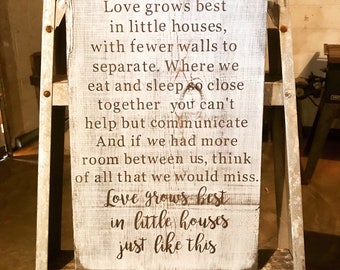 Love grows best
in little houses,
with fewer walls to
separate. Where we
eat and sleep so close
together you can't
help but communicate
And if we had more
room between us, think
of all that we would miss.
Love grows best
in little houses
just like this